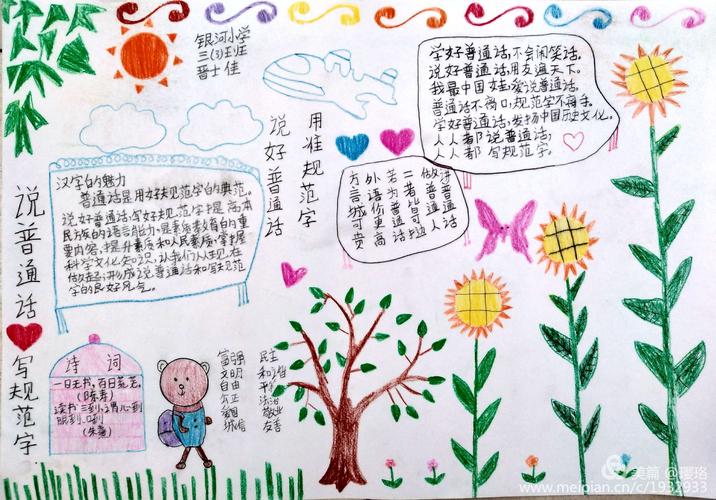 银河小学
三(3)班
晋士佳
学好普通话,不会闹笑话。
说好普通话,用友遍天下。
我最中国娃,爱说普通话。
普通话不离口,规范字不离手。
学好普通话,发扬中国历史文化。
人人都说普通话,
人人都写规范字。
说好普通话
用准规范字
方言城可贵
外语价更高
若为普通话
二者皆可抛
做普通人
讲普通话
说普通话
写规范字
汉字的魅力
普通话是用好规范字的典范。
说好普通话,写好规范字提高本
民族的语言能力,是素质教育的重
要内容,提升素质和人民素质,掌握
科学文化知识,从我们从现在
做起,形成说普通话和写规范
字的良好风气。
诗词
一日无书,百日荒芜。
(陈寿)
读书三到:心到
眼到、口到
(朱熹)
富强
文明
自由
公正
爱国
诚信
民主
和谐
平等
法治
敬业
友善
美篇 @璎珞
www.meipian.cn/c/1932933